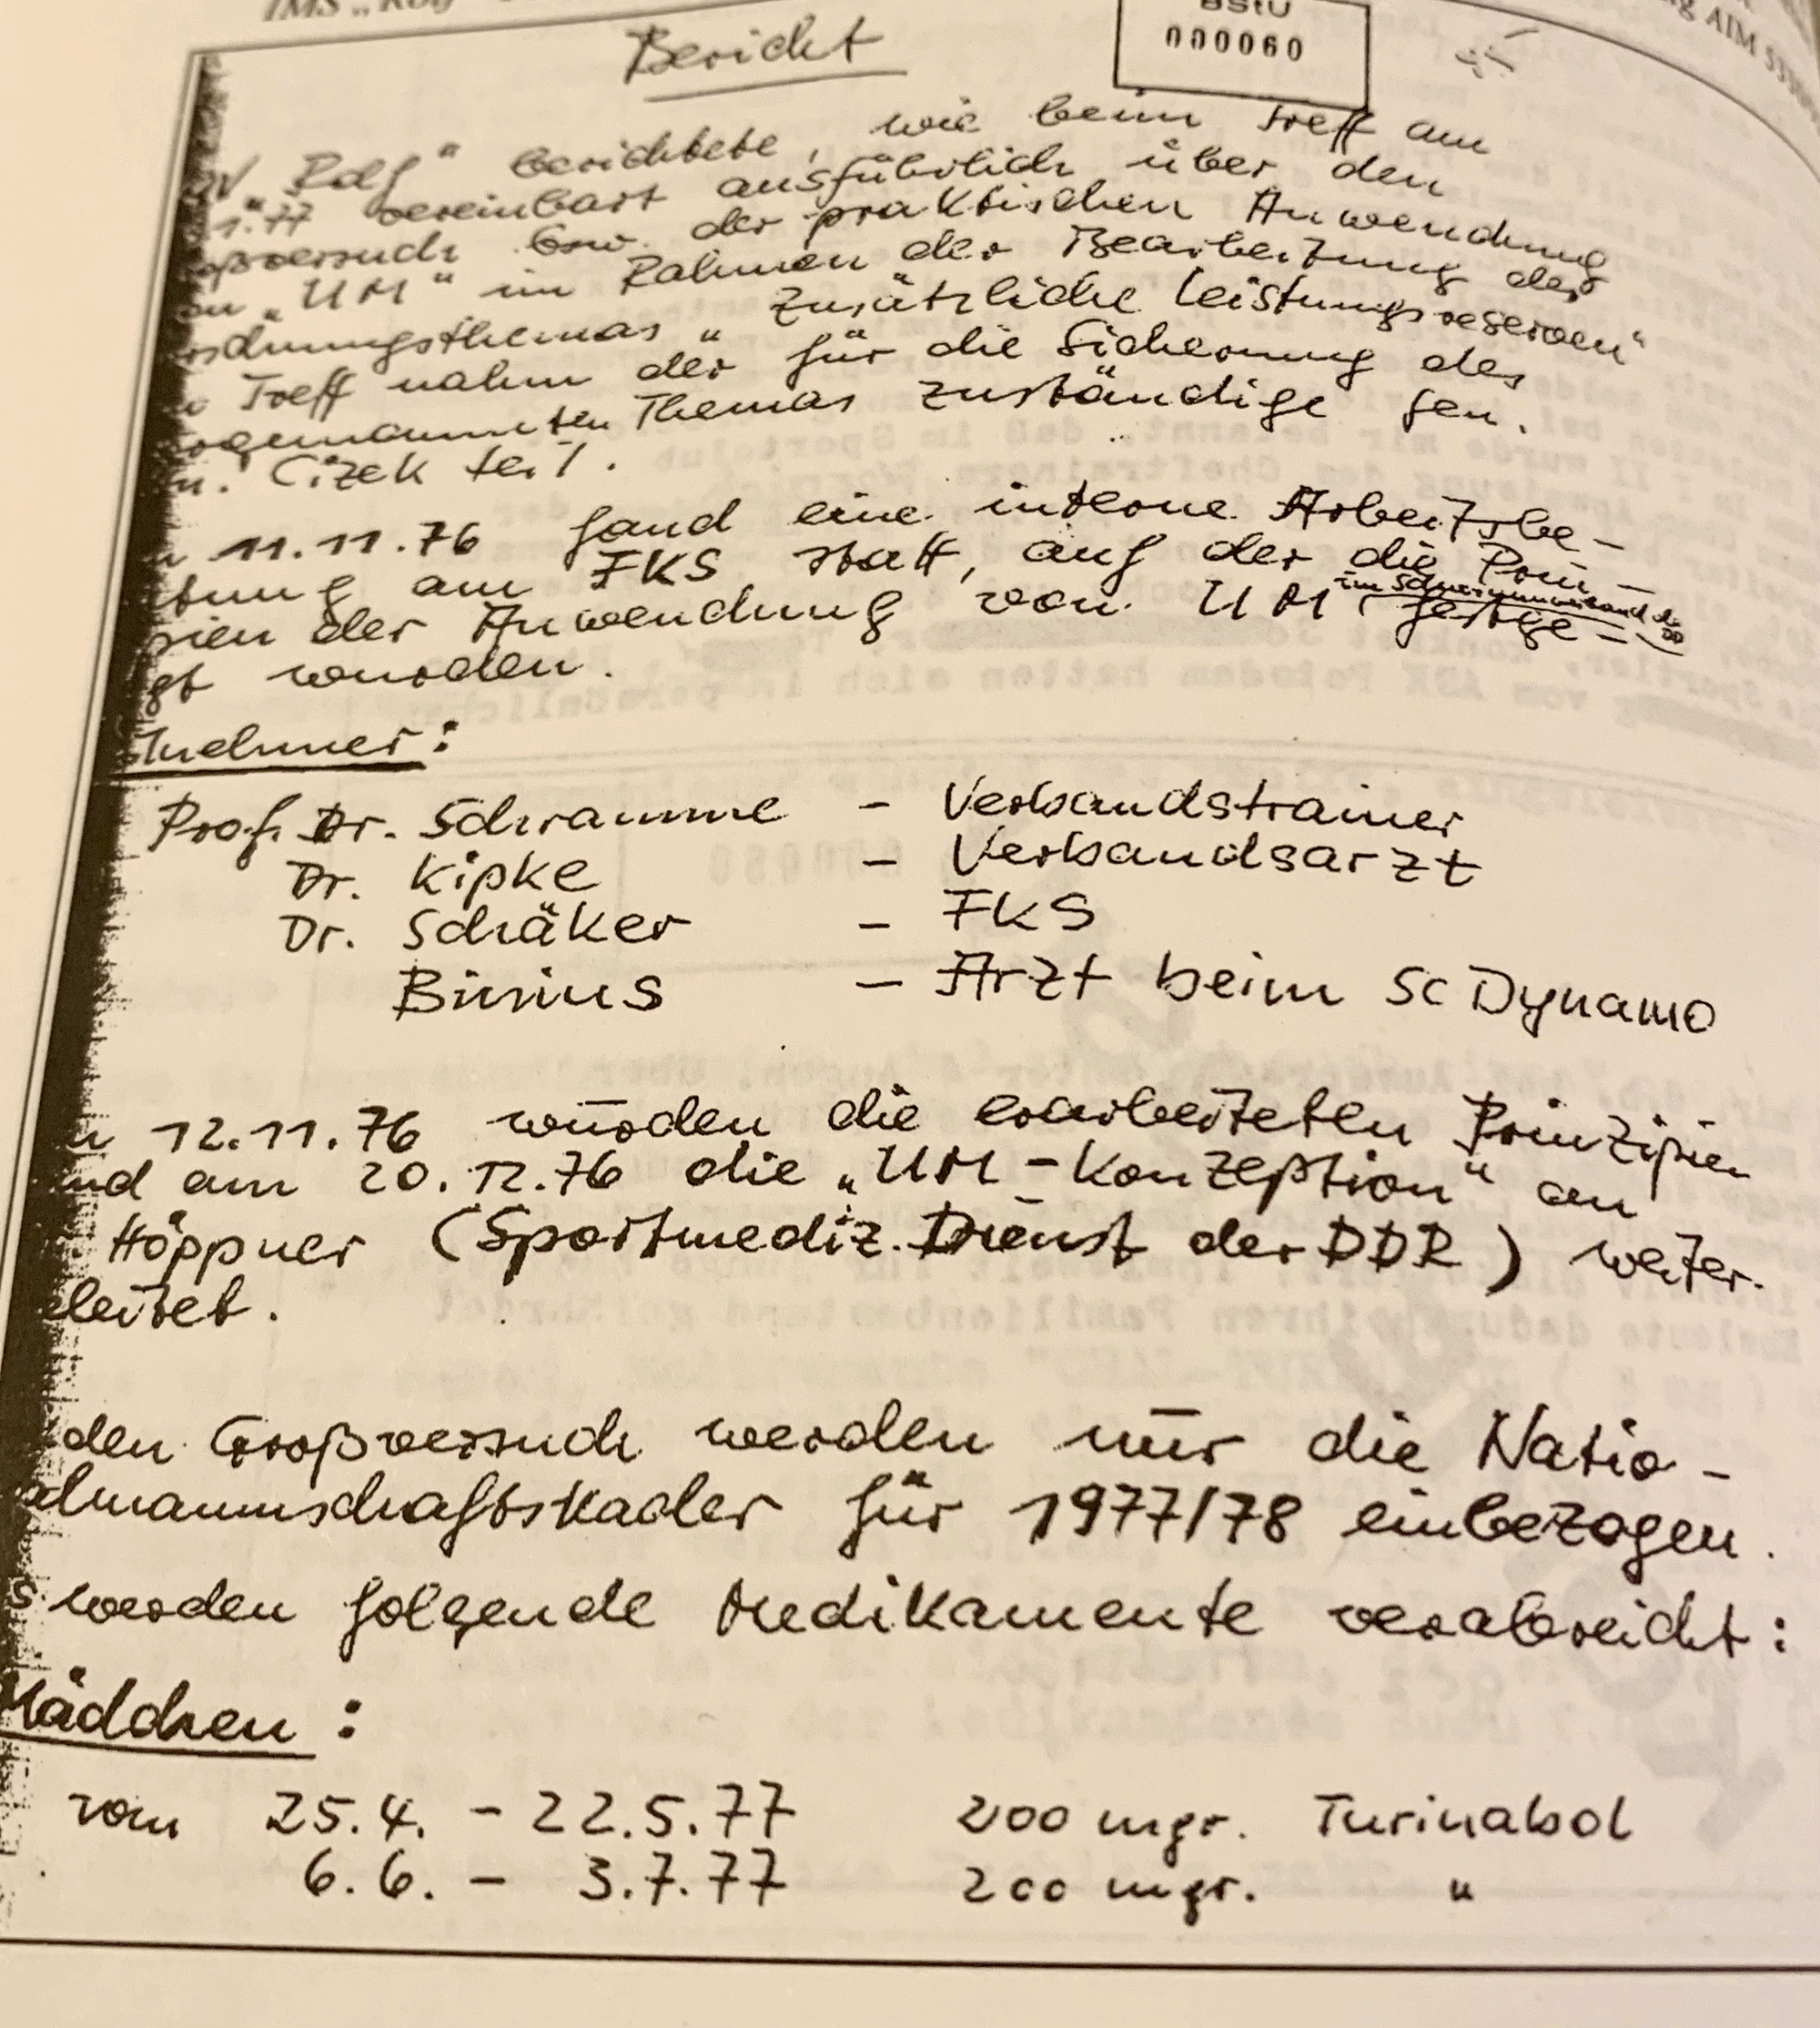 IMS „Rolf
BStU
000060
AIM
Bericht
„Rolf" berichtete, wie beim Treff am
1.77 vereinbart ausführlich über den
oßversuch bzw. der praktischen Anwendung
on „UM" im Rahmen der Bearbeitung des
rschungsthemas „Zusätzliche Leistungsreserven"
Treff nahm der für die Sicherung des
ogenannten Themas zuständige Gen.
n. Cizek teil.
11.11.76 fand eine interne Arbeitsbe-
tung am FKS statt, auf der die Prin-
im Schwimmverband der
zipien der Anwendung von UM festge-
egt wurden.
ilnehmer:
Prof. Dr. Schramme - Verbandstrainer
Dr. Kipke - Verbandsarzt
Dr. Schäker - FKS
Binius - Arzt beim SC Dynamo
12.11.76 wurden die erarbeiteten Prinzipien
und am 20.12.76 die „UM-Konzeption" an
Höppner (Sportmediz. Dienst der DDR) weiter-
eleitet.
den Großversuch werden nur die Natio-
almannschaftskader für 1977/78 einbezogen.
s werden folgende Medikamente verabreicht:
Mädchen:
vom 25.4. - 22.5.77 200 mgr. Turinabol
6.6. - 3.7.77 200 mgr. "